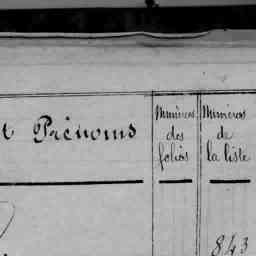 t Prénoms
Numéros
des
folios
Numéros
de
la liste
843